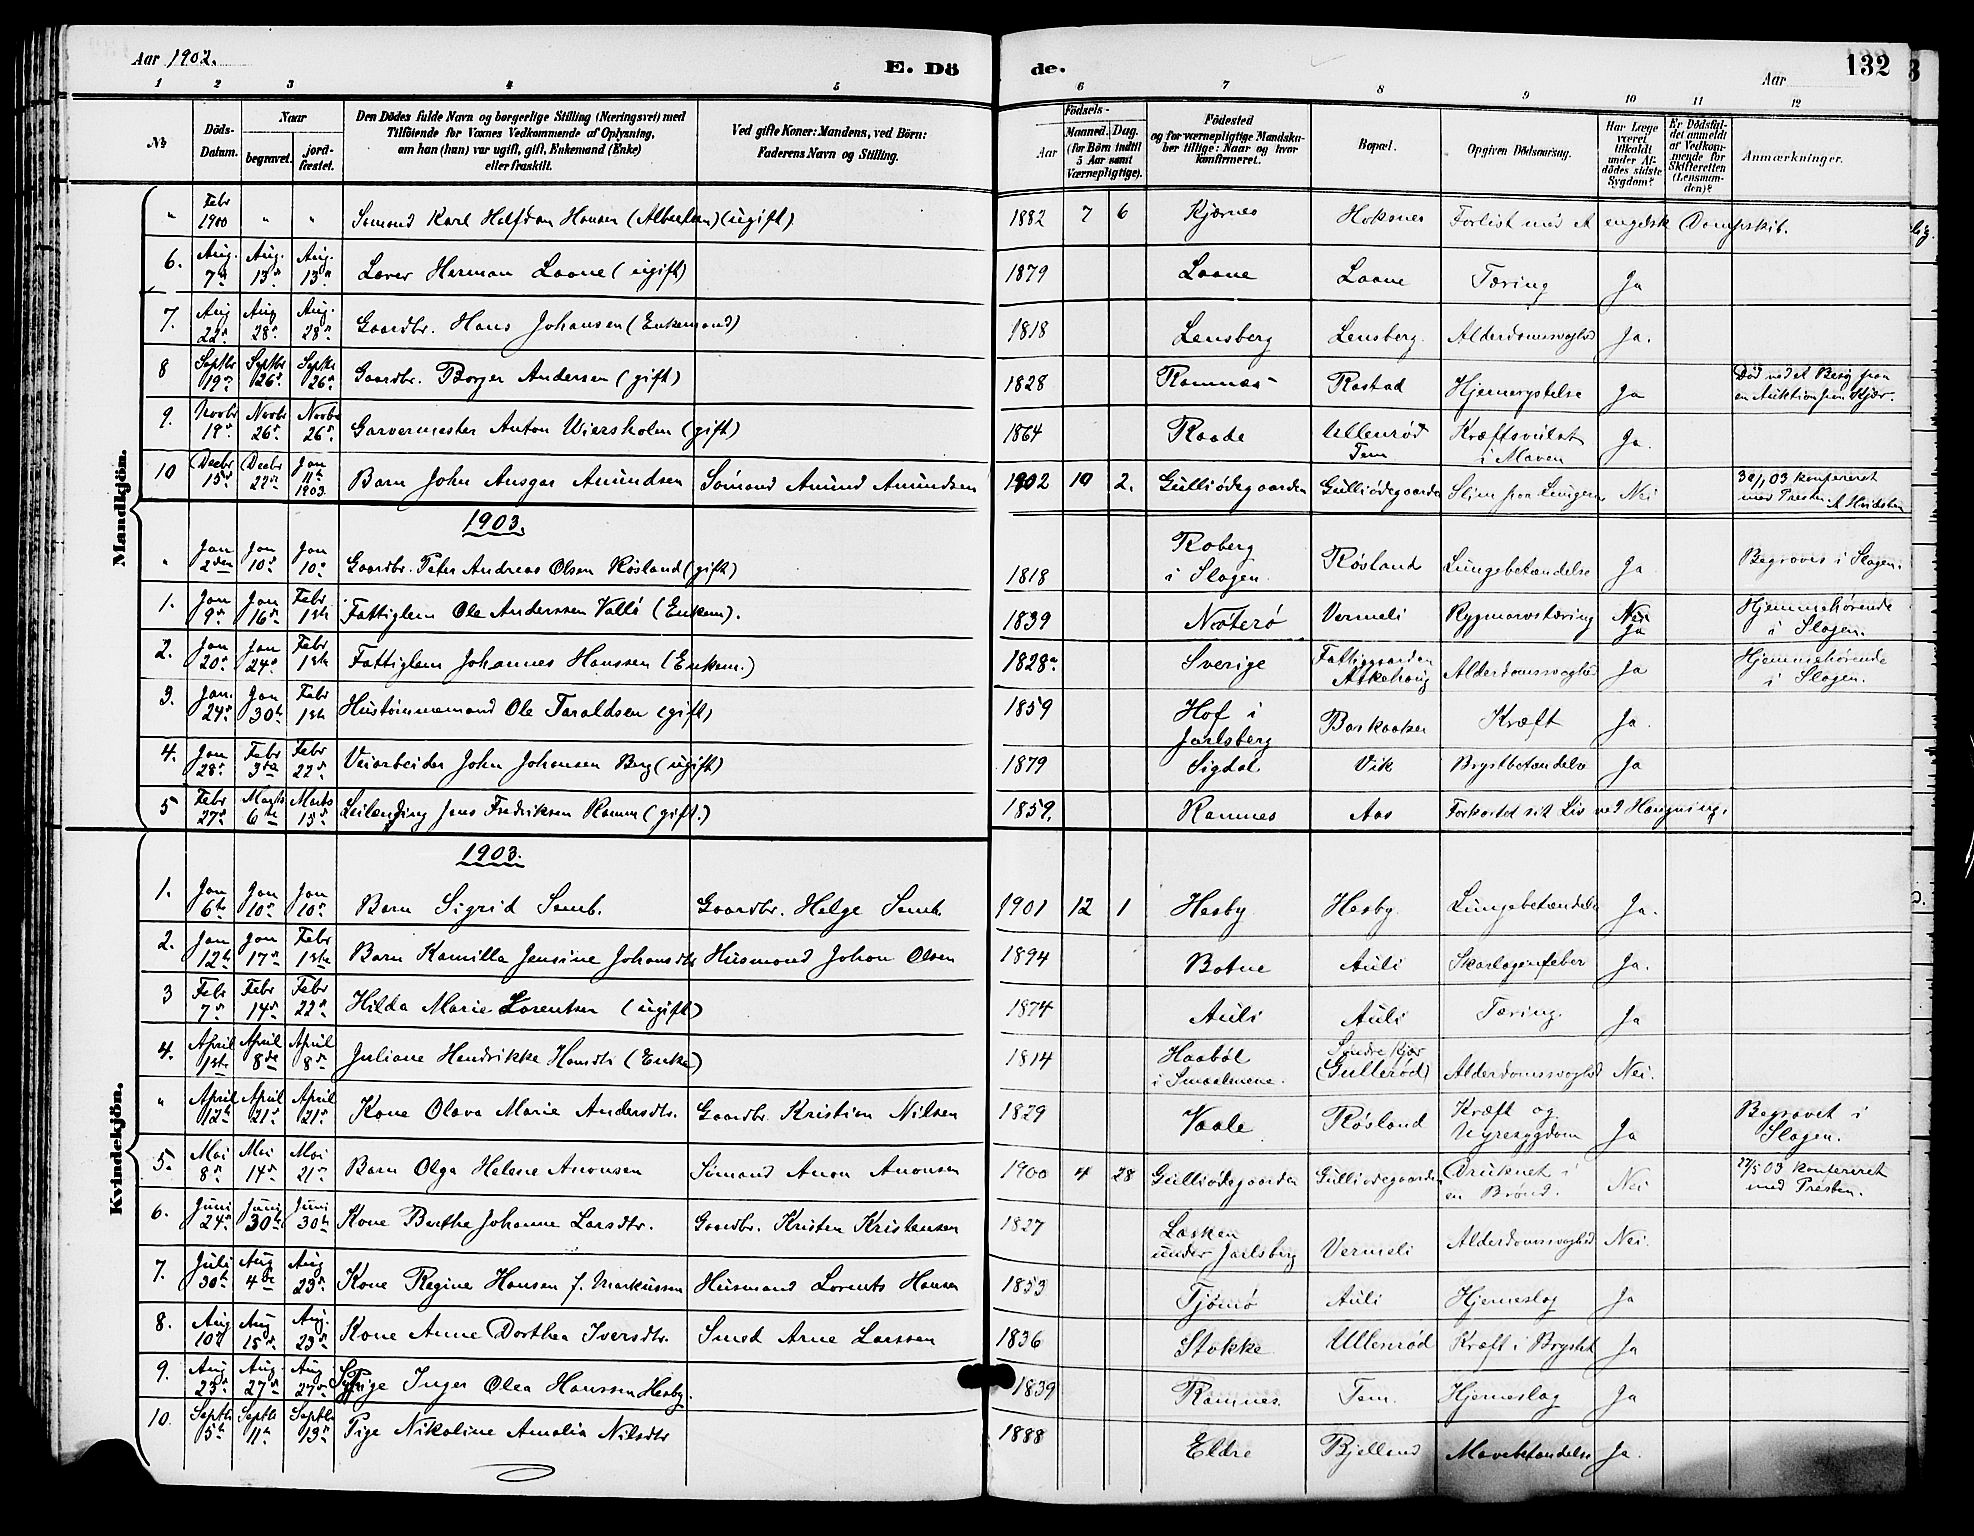 Aar 1902.
E. Dö
de.
Aar
132
1 2 3 4 5 6 7 8 9 10 11 12
№
Döds-Datum.
Naar
begravet.
jord-fæstet.
Den Dödes fulde Navn og borgerlige Stilling (Næringsvei) med
Tilföiende for Voxnes Vedkommende af Oplysning,
om han (hun) var ugift, gift, Enkemand (Enke)
eller fraskilt.
Ved gifte Koner: Mandens, ved Börn:
Faderens Navn og Stilling.
Födsels-
Aar
Maaned. Dag.
(for Börn indtil
5 Aar samt
Værnepligtige).
Födested
og for værnepligtige Mandska-
ber tillige: Naar og hvor
konfirmeret.
Bopæl.
Opgiven Dödsaarsag.
Har Læge
været
tilkaldt
under Af-
dödes sidste
Sygdom?
Er Dödsfal-
det anmeldt
af Vedkom-
mende for
Skifteretten
(Lensman-
den)?
Anmærkninger.
Mandkjön.
" Febr 1900 " " Sømand Karl Halfdan Hansen (Albertsen) (ugift) 1882 7 6 Kjærnes Hoksnes Forlist med et engelsk Dampskib.
6. Aug. 7de Aug. 13de Aug. 13de Laver Herman Laane (ugift) 1879 Laane Laane Tæring Ja
7. Aug 22de Aug 28de Aug. 28de Gaardbr. Hans Johansen (Enkemand) 1818 Lensberg Lensberg. Alderdomssvaghed Ja.
8 Septbr 19de Septbr 26de Septbr 26de Gaardbr. Borger Andersen (gift) 1828 Ramnæs Rastad Hjernerystelse Ja Død ved et Besøg paa en Auktion paa Kjær.
9. Novbr 19de Novbr 26de Novbr 26de Garvermester Anton Wiersholm (gift) 1864 Raade Ullenrød Tem Kræftsvulst i Maven Ja.
10 Decbr 15de Decbr 22de Jan 11te 1903 Barn John Ansgar Amundsen Sømand Amund Amundsen 1902 10 2. Gulliødegaarden Gulliødegaarden Slim paa Lungerne Nei 30/1 03 konfereret med Presten. A Hvidsten
1903.
" Jan 2den Jan 10de Jan 10de Gaardbr. Peter Andreas Olsen Røsland (gift) 1818 Roberg i Slagen. Røsland Lungebetændelse Ja Begraves i Slagen.
1. Jan 9de Jan 16de Febr 1ste Fattiglem Ole Anderssen Vallø (Enkem). 1839 Nøterø Vermeli Rygmarvstæring Nei Ja Hjemmehørende i Slagen.
2. Jan 20de Jan 24de Febr 1ste Fattiglem Johannes Hanssen (Enkem.) 1828 Sverige Fattiggaarden Askehoug Alderdomssvaghed Ja Hjemmehørende i Slagen.
3. Jan. 24de Jan 30te Febr 1ste Hustømmemand Ole Taraldsen (gift) 1859 Hof i Jarlsberg Barkaaker Kræft Ja.
4. Jan 28de Febr 3die Febr 22de Veiarbeider John Johansen Berg (ugift) 1879 Sigdal Vik Brystbetændelse Ja
5 Febr 27de Marts 6te Marts 15de Leilænding Jens Fredriksen Ramm (gift.) 1859. Ramnes Aas Forkortet sit Liv ved Hængning.
Kvindekjön.
1903.
1. Jan 6te Jan 10de Jan 10de Barn Sigrid Semb. Gaardbr. Helge Semb. 1901 12 1 Hesby Hesby. Lungebetændelse Ja.
2. Jan 12te Jan 17de Febr 1ste Barn Kamilla Jensine Johansdtr Husmand Johan Olsen 1894 Botne Auli Skarlagenfeber Ja.
3 Febr 7de Febr 14de Febr 22de Hilda Marie Lorentsen (ugift) 1874 Auli Auli Tæring. Ja
4. April 1ste April 8de April 8de Juliane Hendrikke Hansdtr (Enke) 1814 Haabøl i Smaalenene. Søndre Kjær (Gullerød) Alderdomssvaghed Nei.
" April 12te April 21de April 21de Kone Olava Marie Andersdtr. Gaardbr. Kristian Nilsen 1829 Vaale Røsland Kræft og Nyresygdom Ja Begravet i Slagen.
5. Mai 8de Mai 14de Mai 21de Barn Olga Helene Aronsen Sømand Aron Aronsen 1900 4 28 Gulliødegaarden Gulliødegaarden Druknet i en Brønd. Nei 27/5 03 konfereret med Presten.
6. Juni 24de Juni 30te Juni 30te Kone Berthe Johanne Larsdtr. Gaardbr. Kristen Kristensen 1827 Lasken under Jarlsberg Vermeli Alderdomssvaghed Nei.
7. Juli 30te Aug 4de Aug 23de Kone Regine Hansen f. Markussen Husmand Lorents Hansen 1853 Tjømø Auli Hjerneslag Ja
8. Aug 10de Aug 15de Aug. 23de Kone Anne Dorthea Iversdtr. Smed Arne Larssen 1836 Stokke Ullenrød Kræft i Brystet Ja
9. Aug 23de Aug. 27de Aug 27de Pige Inger Olea Hanssen Hesby. 1839 Ramnes. Tem. Hjerneslag Ja
10. Septbr 5te Septbr 11te Septbr 13de Pige Nikoline Amalia Nilsdtr 1888 Eldre Bjelland Mavebetændelse Ja.